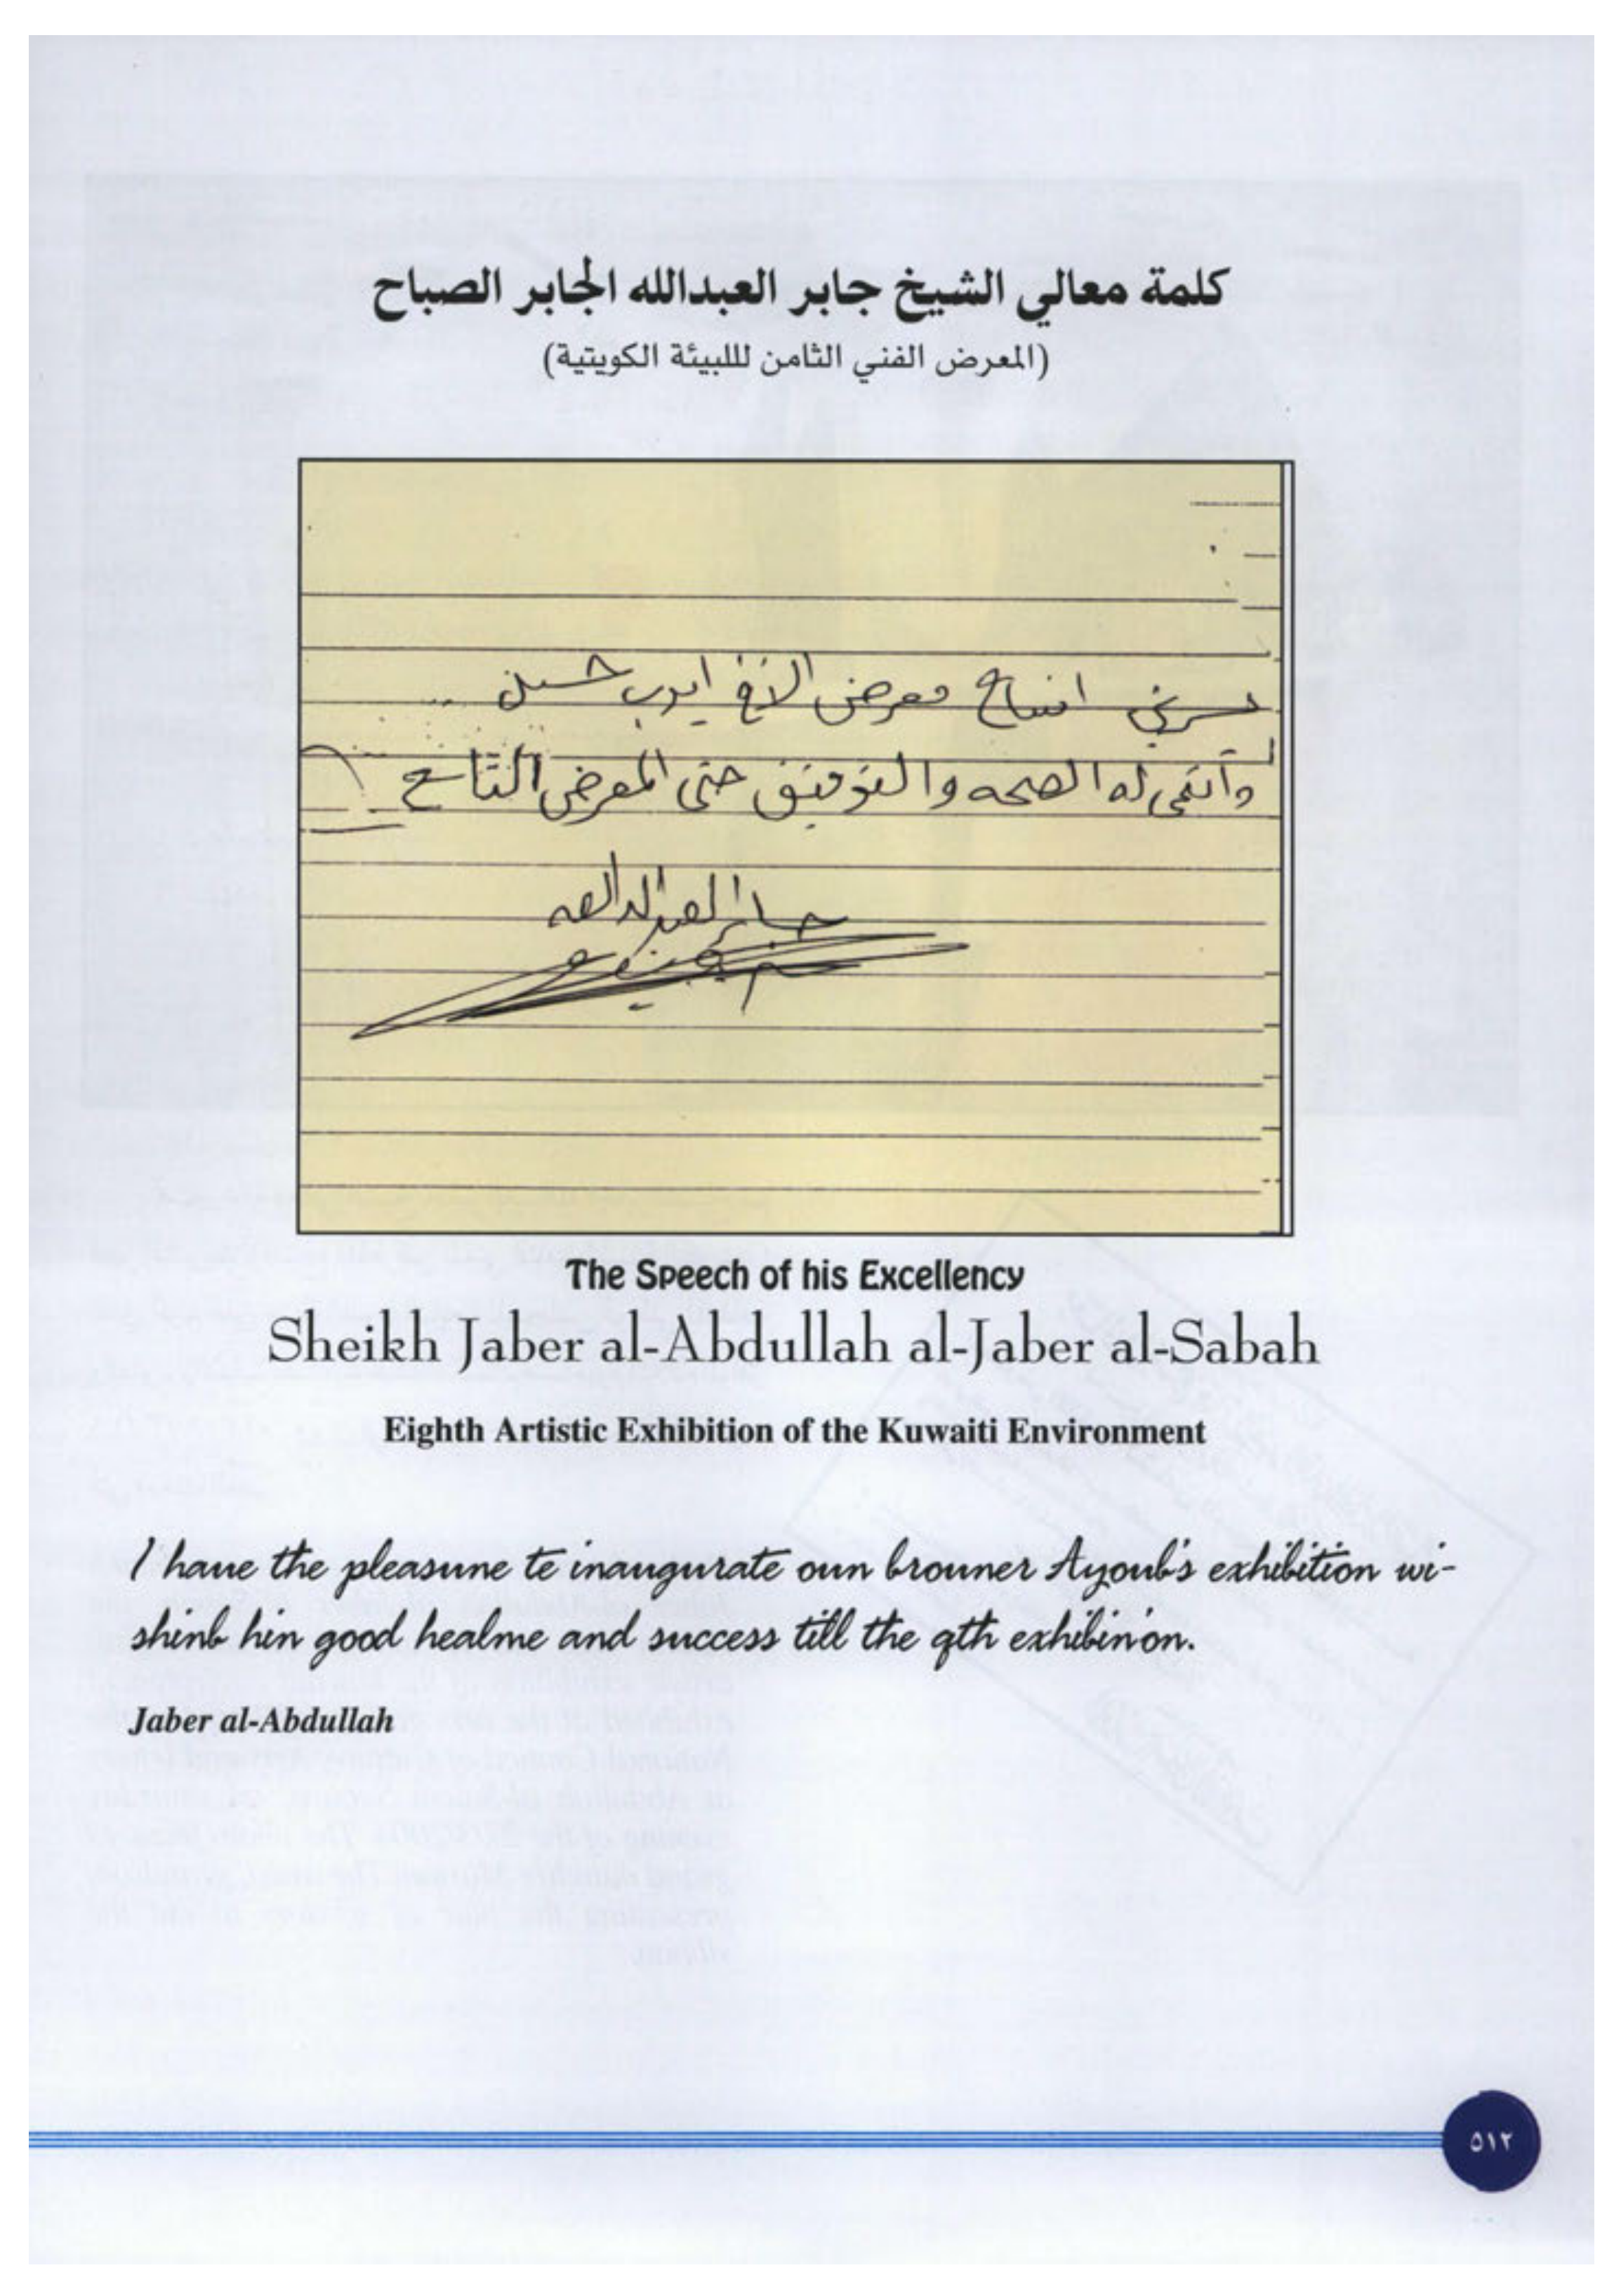 كلمة معالي الشيخ جابر العبدالله الجابر الصباح
(المعرض الفني الثامن لللبيئة الكويتية)
يسرني افتتاح معرض الأخ ايوب حسين
وأتمنى له الصحه والتوفيق حتى المعرض التاسع
جابر العبدالله
The Speech of his Excellency
Sheikh Jaber al-Abdullah al-Jaber al-Sabah
Eighth Artistic Exhibition of the Kuwaiti Environment
I haue the pleasune te inaugurate oun brouner Ayoub's exhibition wi-
shinb hin good healme and success till the qth exhibinion.
Jaber al-Abdullah
٥١٢